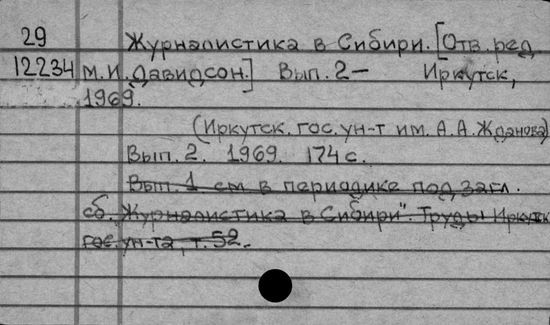 29 Журналистика в Сибири. [Отв. ред.
12234 М.И. Давидсон.] Вып. 2– Иркутск,
1969.
(Иркутск. гос. ун-т им. А.А. Жданова)
Вып. 2. 1969. 174 с.
Вып. 1 см. в периодике под загл.
сб. "Журналистика в Сибири". Труды Иркутск.
гос. ун-та, т. 52.